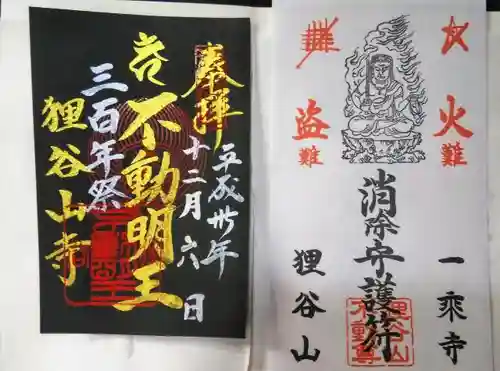 奉拝
平成卅年
十二月六日
不動明王
三百年祭
狸谷山寺
火難
盗難
消除守護符
一乗寺
狸谷山
狸谷山
不動尊